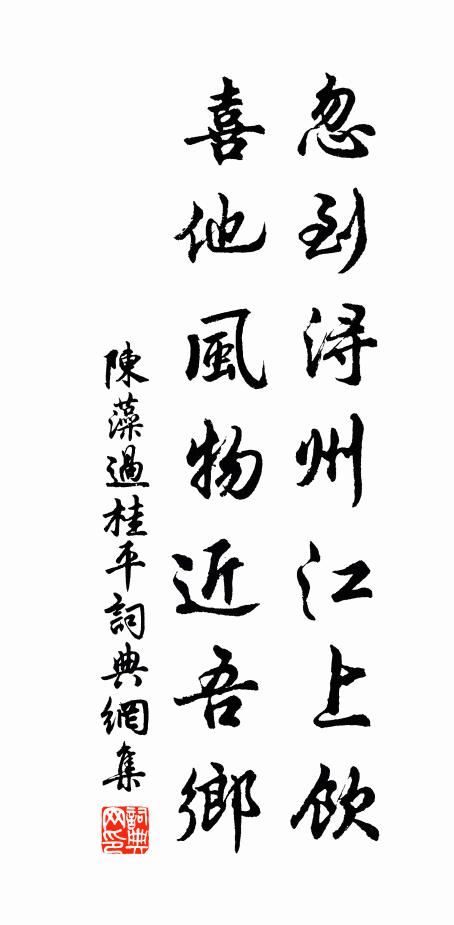 忽到潯州江上飲
喜他風物近吾鄉
陳藻過桂平詞典網集
詞典网印